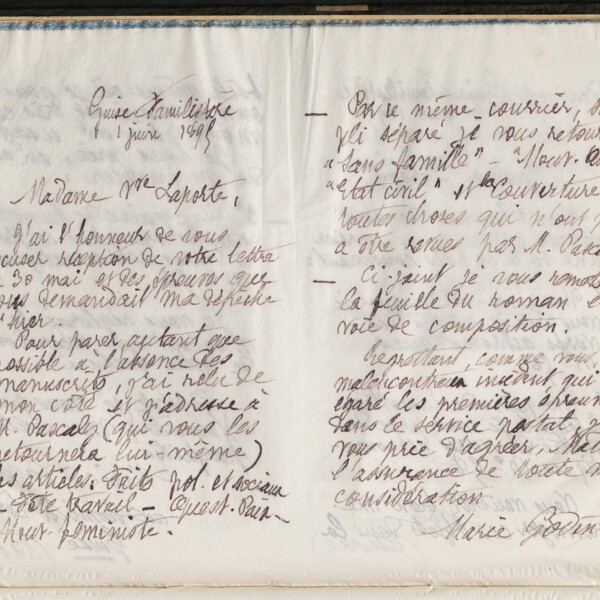 Guise Familistère
1 juin 1895
Madame Vve Laporte,
J'ai l'honneur de vous
cuser réception de votre lettre
30 mai et des épreuves que
ous demandait ma dépêche
hier.
Pour parer autant que
possible à l'absence des
manuscrits, j'ai relu de
mon côté et j'adresse à
M. Pascaly (qui vous les
retournera lui-même)
es articles. Faits pol. et sociaux
Fête travail – Quest. Paix –
Mouv. féministe.
— Par le même courrier, s
pli séparé je vous retour
"Sans famille" – "Mouv.
"Etat civil" et la Couverture
toutes choses qui n'ont p
à être revues par M. Pasc
— Ci-joint je vous remets
la feuille du roman e
voie de composition.
Regrettant, comme vous
malencontreux incident qui
égaré les premières épreuv
dans le service postal, j
vous prie d'agréer, Mad
l'assurance de toute m
considération
Marie Godin